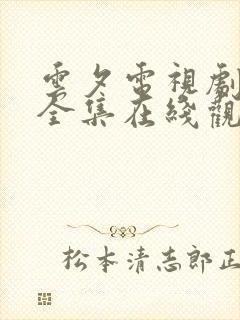 雲夕電視劇
全集在綫觀
松本清志郎正